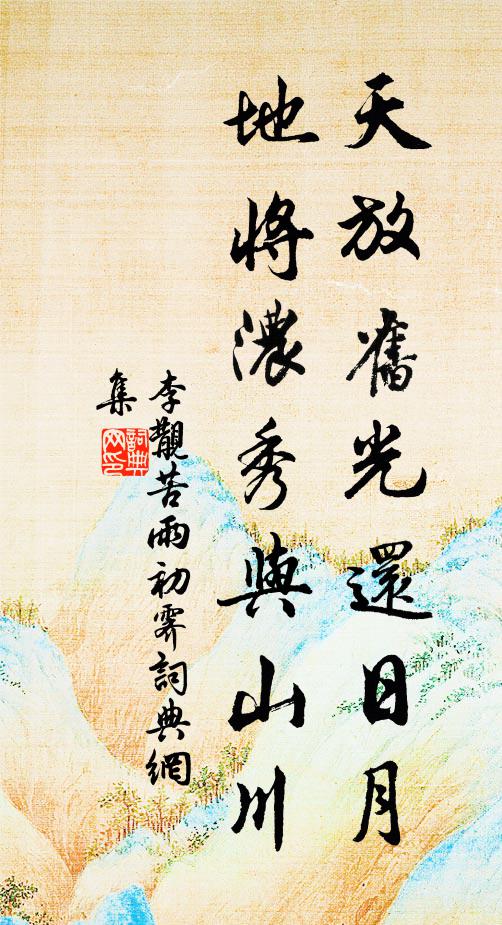 天放舊光還日月
地將濃秀與山川
李觀苦雨初霽詞典網
集
詞典
网印